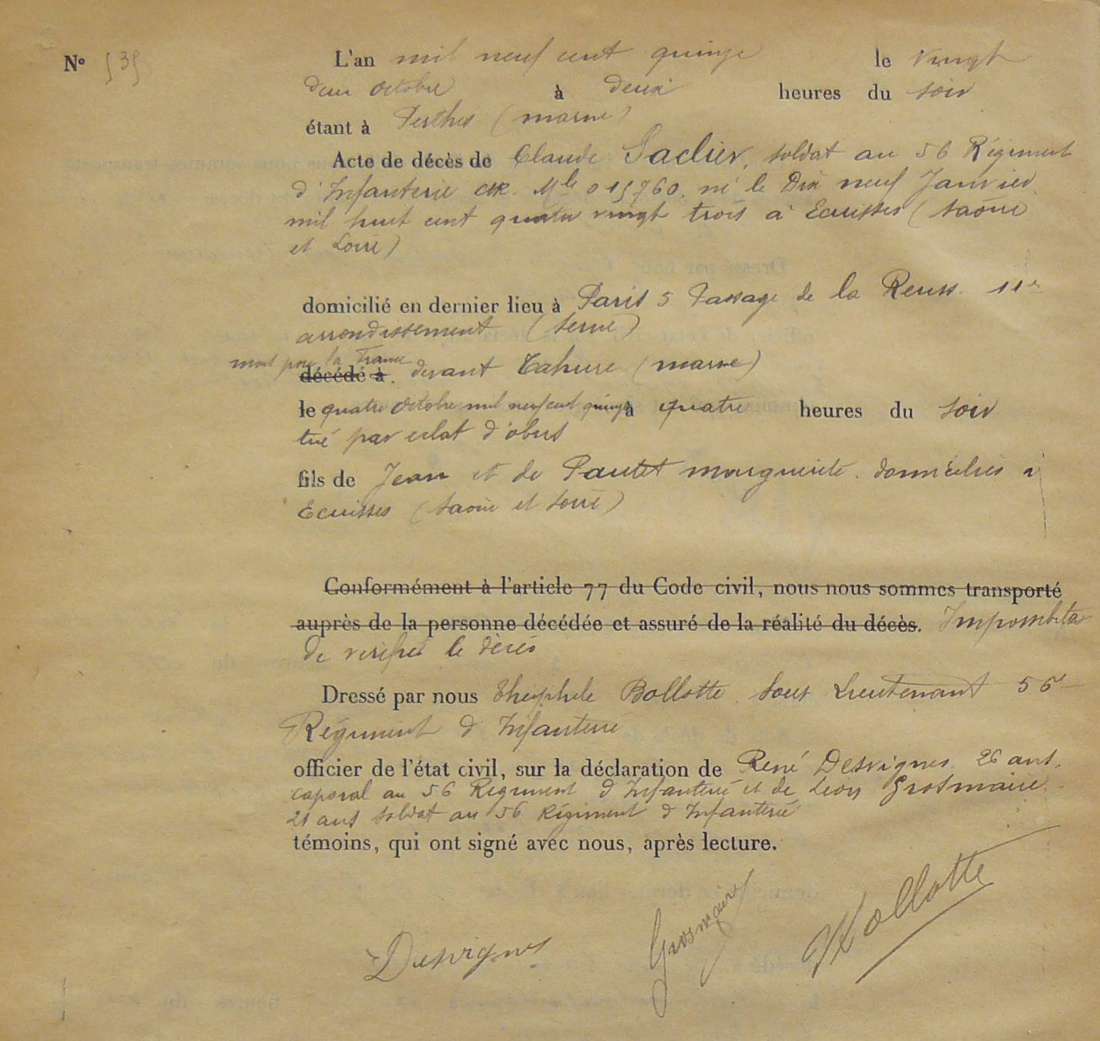 N° 535
L'an mil neuf cent quinze le vingt
deux octobre à deux heures du soir
étant à Perthes (marne)
Acte de décès de Claude Saclier, soldat au 56 Régiment
d'Infanterie Mle 015760, né le Dix neuf Janvier
mil huit cent quatre vingt trois à Ecuisses (Saône
et Loire)
domicilié en dernier lieu à Paris 5 Passage de la 11e
arrondissement (Seine)
mort pour la France
décédé à devant Tahure (marne)
le quatre octobre mil neuf cent quinze à quatre heures du soir
tué par eclat d'obus
fils de Jean et de Pautet marguerite domiciliés à
Ecuisses (Saône et Loire)
Conformément à l'article 77 du Code civil, nous nous sommes transporté
auprès de la personne décédée et assuré de la réalité du décès. Impossibilité
de verifier le décès
Dressé par nous Théophile Bollotte Sous Lieutenant 56
Régiment d'Infanterie
officier de l'état civil, sur la déclaration de René Desvignes 26 ans,
caporal au 56 Régiment d'Infanterie et de Léon Grosmaire
21 ans soldat au 56 Régiment d'Infanterie
témoins, qui ont signé avec nous, après lecture.
Desvignes Grosmaire Bollotte